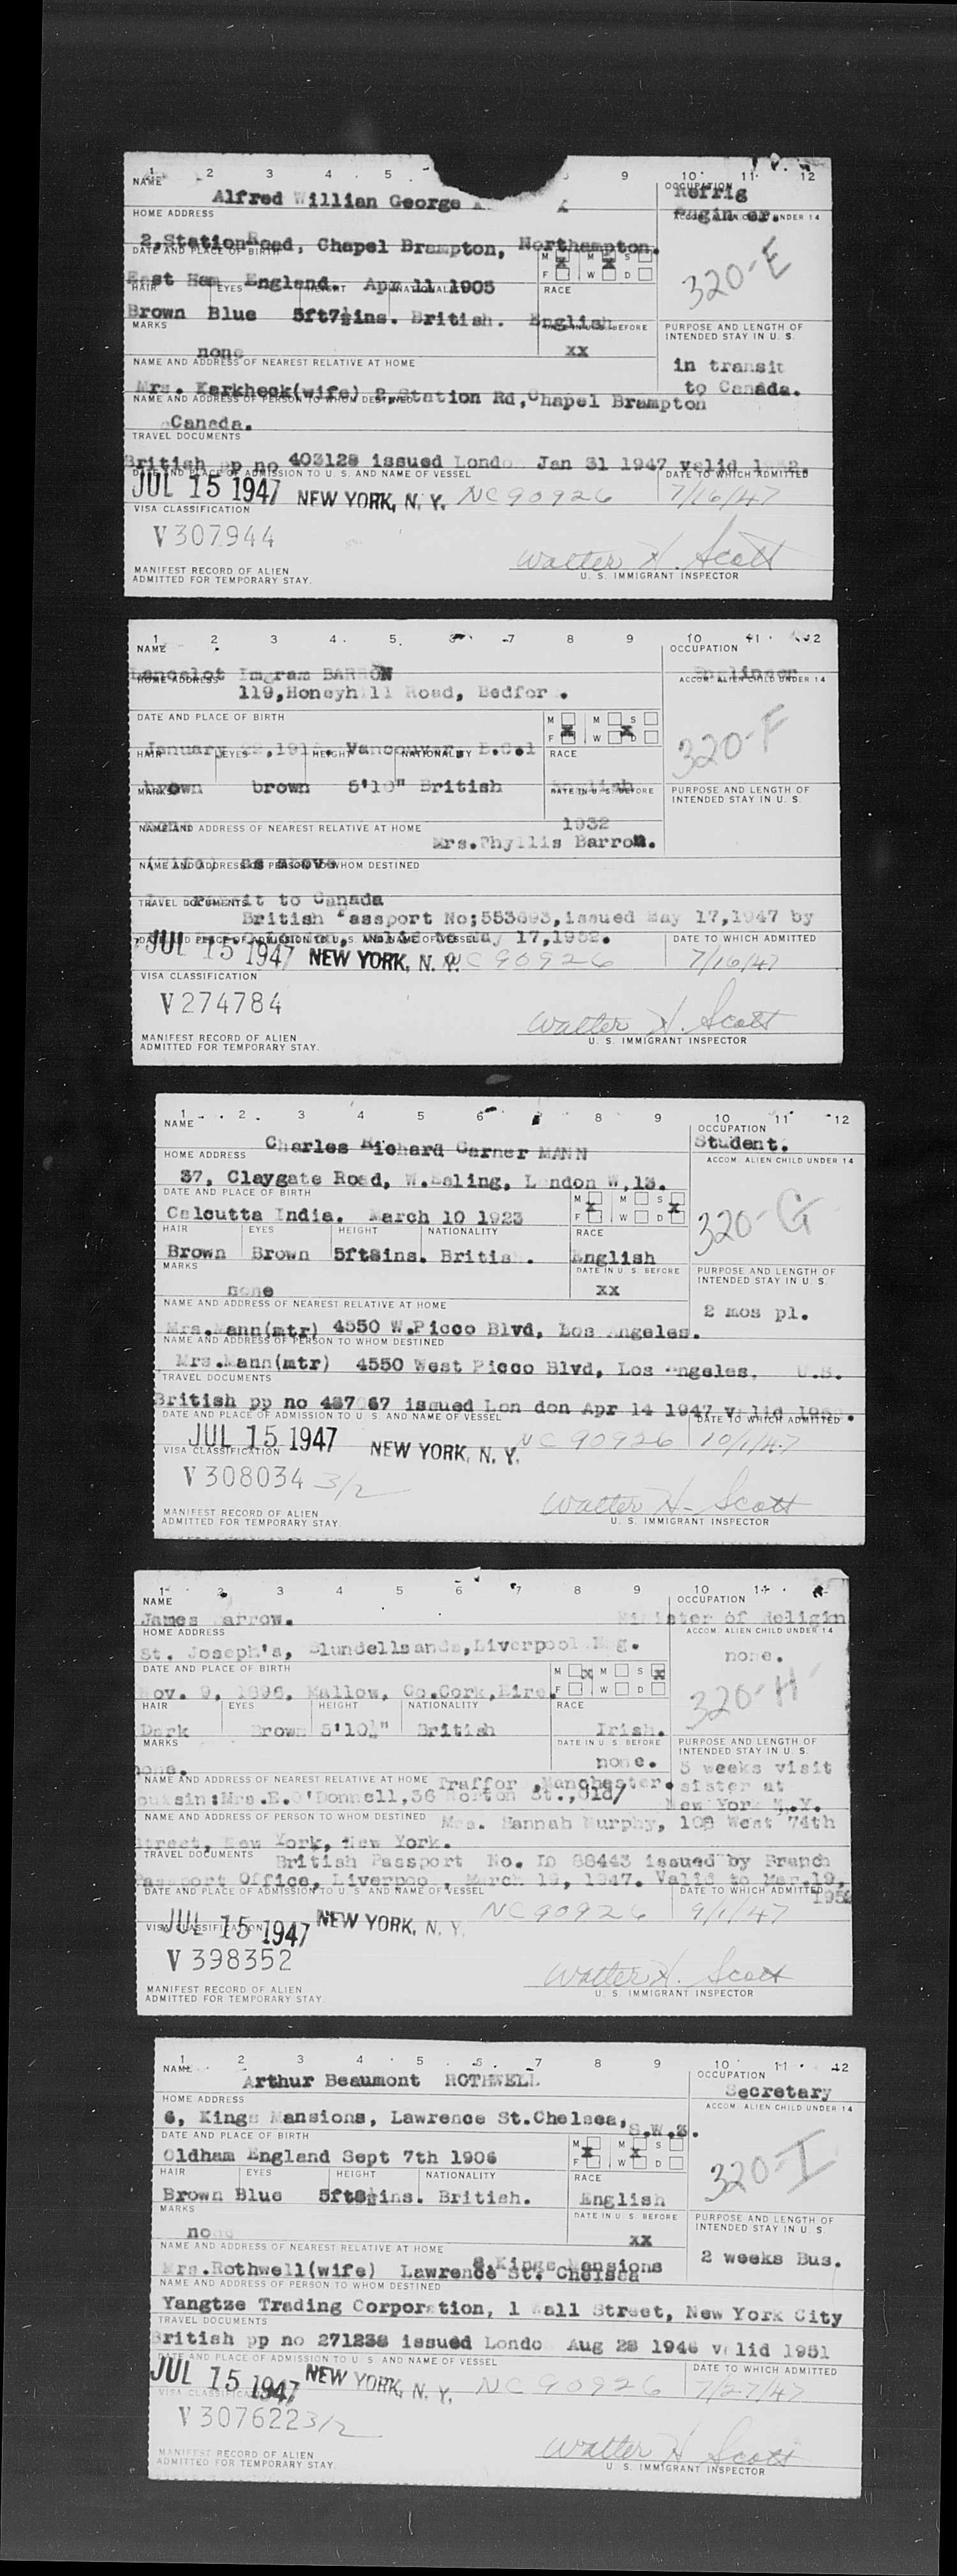 1 2 3 4 5 9 10 11 12
NAME OCCUPATION
Alfred Willian George Refrig
HOME ADDRESS Engineer. ACCOM. ALIEN CHILD UNDER 14
2, Station Road, Chapel Brampton, Northampton.
DATE AND PLACE OF BIRTH M M S
F W D
East Ham England. Apr 11 1905 320-E
HAIR EYES HEIGHT NATIONALITY RACE
Brown Blue 5ft7½ins. British. English
MARKS DATE IN U. S. BEFORE PURPOSE AND LENGTH OF
INTENDED STAY IN U. S.
none xx
NAME AND ADDRESS OF NEAREST RELATIVE AT HOME in transit
to Canada.
Mrs. Karkheck(wife) 2, Station Rd, Chapel Brampton
NAME AND ADDRESS OF PERSON TO WHOM DESTINED
Canada.
TRAVEL DOCUMENTS
British pp no 403128 issued London Jan 31 1947 valid 1952.
DATE AND PLACE OF ADMISSION TO U. S. AND NAME OF VESSEL DATE TO WHICH ADMITTED
JUL 15 1947 NEW YORK, N. Y. NC 90926 7/16/47
VISA CLASSIFICATION
V 307944
Walter H. Scott
MANIFEST RECORD OF ALIEN U. S. IMMIGRANT INSPECTOR
ADMITTED FOR TEMPORARY STAY.
1 2 3 4 5 6 7 8 9 10 11 12
NAME OCCUPATION
Lancelot Ingram BARRON Engineer
HOME ADDRESS ACCOM. ALIEN CHILD UNDER 14
119, Honeyhill Road, Bedford.
DATE AND PLACE OF BIRTH M M S
F W D
January , Vancouver, B.Col 320-F
HAIR EYES HEIGHT NATIONALITY RACE
brown brown 5'10" British English
MARKS DATE IN U. S. BEFORE PURPOSE AND LENGTH OF
INTENDED STAY IN U. S.
1932
NAME AND ADDRESS OF NEAREST RELATIVE AT HOME
Mrs. Phyllis Barron.
(wife) as above
NAME AND ADDRESS OF PERSON TO WHOM DESTINED
In transit to Canada
TRAVEL DOCUMENTS
British Passport No; 553693, issued May 17, 1947 by
valid to May 17, 1952.
DATE AND PLACE OF ADMISSION TO U. S. AND NAME OF VESSEL DATE TO WHICH ADMITTED
JUL 15 1947 NEW YORK, N. Y. NC 90926 7/16/47
VISA CLASSIFICATION
V 274784
Walter H. Scott
MANIFEST RECORD OF ALIEN U. S. IMMIGRANT INSPECTOR
ADMITTED FOR TEMPORARY STAY.
1 2 3 4 5 6 7 8 9 10 11 12
NAME OCCUPATION
Charles Richard Garner MANN Student.
HOME ADDRESS ACCOM. ALIEN CHILD UNDER 14
37, Claygate Road, W. Ealing, London W, 13.
DATE AND PLACE OF BIRTH M M S
F W D
Calcutta India. March 10 1923 320-G
HAIR EYES HEIGHT NATIONALITY RACE
Brown Brown 5ft8ins. British. English
MARKS DATE IN U. S. BEFORE PURPOSE AND LENGTH OF
INTENDED STAY IN U. S.
none xx
NAME AND ADDRESS OF NEAREST RELATIVE AT HOME 2 mos pl.
Mrs. Mann(mtr) 4550 W. Picco Blvd, Los Angeles.
NAME AND ADDRESS OF PERSON TO WHOM DESTINED
Mrs. Mann(mtr) 4550 West Picco Blvd, Los Angeles, U.S.
TRAVEL DOCUMENTS
British pp no issued Lon don Apr 14 1947 valid
DATE AND PLACE OF ADMISSION TO U. S. AND NAME OF VESSEL DATE TO WHICH ADMITTED
JUL 15 1947 NEW YORK, N. Y. NC 90926 10/1/47
VISA CLASSIFICATION
V 308034 3/2
Walter H. Scott
MANIFEST RECORD OF ALIEN U. S. IMMIGRANT INSPECTOR
ADMITTED FOR TEMPORARY STAY.
1 2 3 4 5 6 7 8 9 10 11
NAME OCCUPATION
James arrow. Minister of Religin
HOME ADDRESS ACCOM. ALIEN CHILD UNDER 14
St. Joseph's, Blundellsands, Liverpool Eng. none.
DATE AND PLACE OF BIRTH M M S
F W D
Nov. 9, 1896, Mallow, Co. Cork, Eire. 320-H
HAIR EYES HEIGHT NATIONALITY RACE
Dark Brown 5'10½" British Irish.
MARKS DATE IN U. S. BEFORE PURPOSE AND LENGTH OF
INTENDED STAY IN U. S.
none. none. 5 weeks visit
NAME AND ADDRESS OF NEAREST RELATIVE AT HOME Traffor , Manchester. sister at
cousin: Mrs. E. O'Donnell, 36 Norton St., Old/ New York N.Y.
NAME AND ADDRESS OF PERSON TO WHOM DESTINED Mrs. Hannah Murphy, 108 West 74th
Street, New York, New York.
TRAVEL DOCUMENTS British Passport No. ID 88443 issued by Branch
Passport Office, Liverpool, March 19, 1947. Valid to Mar. 19,
1952
DATE AND PLACE OF ADMISSION TO U. S. AND NAME OF VESSEL DATE TO WHICH ADMITTED
JUL 15 1947 NEW YORK, N. Y. NC 90926 9/1/47
VISA CLASSIFICATION
V 398352
Walter H. Scott
MANIFEST RECORD OF ALIEN U. S. IMMIGRANT INSPECTOR
ADMITTED FOR TEMPORARY STAY.
1 2 3 4 5 6 7 8 9 10 11 12
NAME OCCUPATION
Arthur Beaumont ROTHWELL Secretary
HOME ADDRESS ACCOM. ALIEN CHILD UNDER 14
6, Kings Mansions, Lawrence St. Chelsea, S.W.3.
DATE AND PLACE OF BIRTH M M S
F W D
Oldham England Sept 7th 1906 320-I
HAIR EYES HEIGHT NATIONALITY RACE
Brown Blue 5ft8½ins. British. English
MARKS DATE IN U. S. BEFORE PURPOSE AND LENGTH OF
INTENDED STAY IN U. S.
none xx
NAME AND ADDRESS OF NEAREST RELATIVE AT HOME 2 weeks Bus.
6, Kings Mansions
Mrs. Rothwell(wife) Lawrence St. Chelsea
NAME AND ADDRESS OF PERSON TO WHOM DESTINED
Yangtze Trading Corporation, 1 Wall Street, New York City
TRAVEL DOCUMENTS
British pp no 271238 issued London Aug 28 1946 valid 1951
DATE AND PLACE OF ADMISSION TO U. S. AND NAME OF VESSEL DATE TO WHICH ADMITTED
JUL 15 1947 NEW YORK, N. Y. NC 90926 7/27/47
VISA CLASSIFICATION
V 307622 3/2
Walter H Scott
MANIFEST RECORD OF ALIEN U. S. IMMIGRANT INSPECTOR
ADMITTED FOR TEMPORARY STAY.